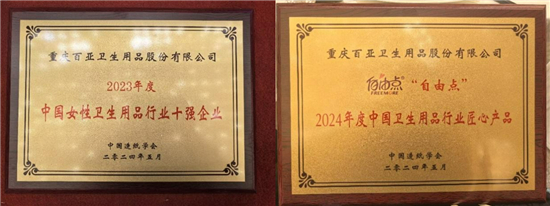 重庆百亚卫生用品股份有限公司
2023年度
中国女性卫生用品行业十强企业
中国造纸学会
二〇二四年五月
重庆百亚卫生用品股份有限公司
自由点 FREEMORE “自由点”
2024年度中国卫生用品行业匠心产品
中国造纸学会
二〇二四年五月